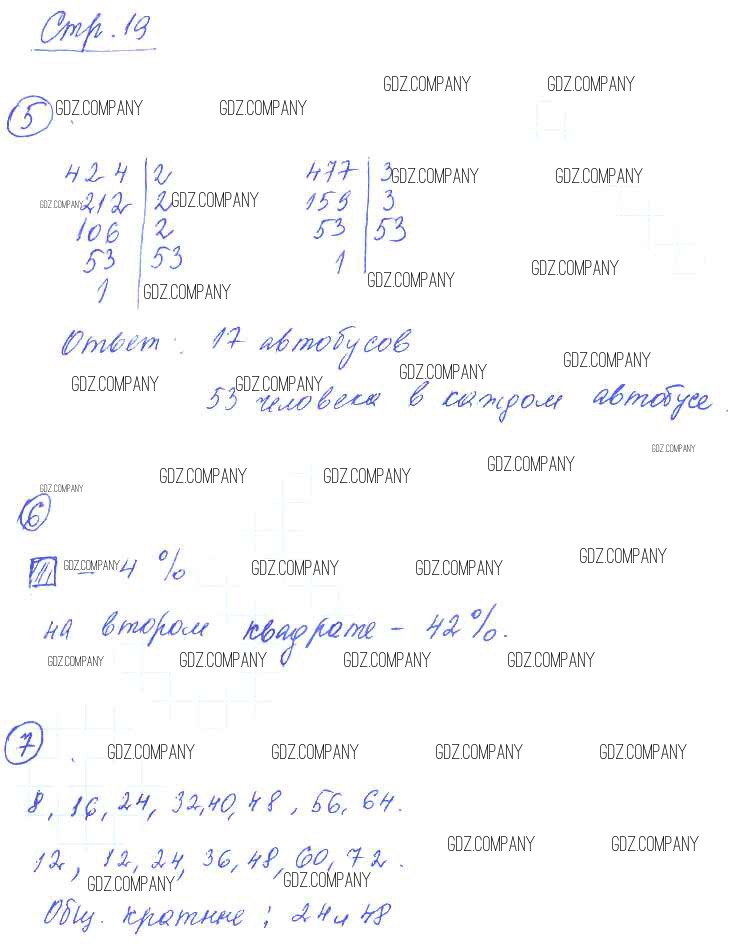 Стр. 19
GDZ.COMPANY GDZ.COMPANY
5 GDZ.COMPANY GDZ.COMPANY
424 | 2 477 | 3 GDZ.COMPANY GDZ.COMPANY
GDZ.COMPANY 212 | 2 GDZ.COMPANY 159 | 3
106 | 2 53 | 53
53 | 53 1 | GDZ.COMPANY
1 | GDZ.COMPANY GDZ.COMPANY
Ответ: 17 автобусов
GDZ.COMPANY GDZ.COMPANY GDZ.COMPANY GDZ.COMPANY
53 человека в каждом автобусе.
GDZ.COMPANY GDZ.COMPANY GDZ.COMPANY GDZ.COMPANY
GDZ.COMPANY
6
GDZ.COMPANY – 4 % GDZ.COMPANY GDZ.COMPANY GDZ.COMPANY
на втором квадрате – 42%.
GDZ.COMPANY GDZ.COMPANY GDZ.COMPANY GDZ.COMPANY
7 GDZ.COMPANY GDZ.COMPANY GDZ.COMPANY GDZ.COMPANY
8, 16, 24, 32, 40, 48, 56, 64.
GDZ.COMPANY GDZ.COMPANY
12, 12, 24, 36, 48, 60, 72.
GDZ.COMPANY GDZ.COMPANY
Общ. кратные: 24 и 48